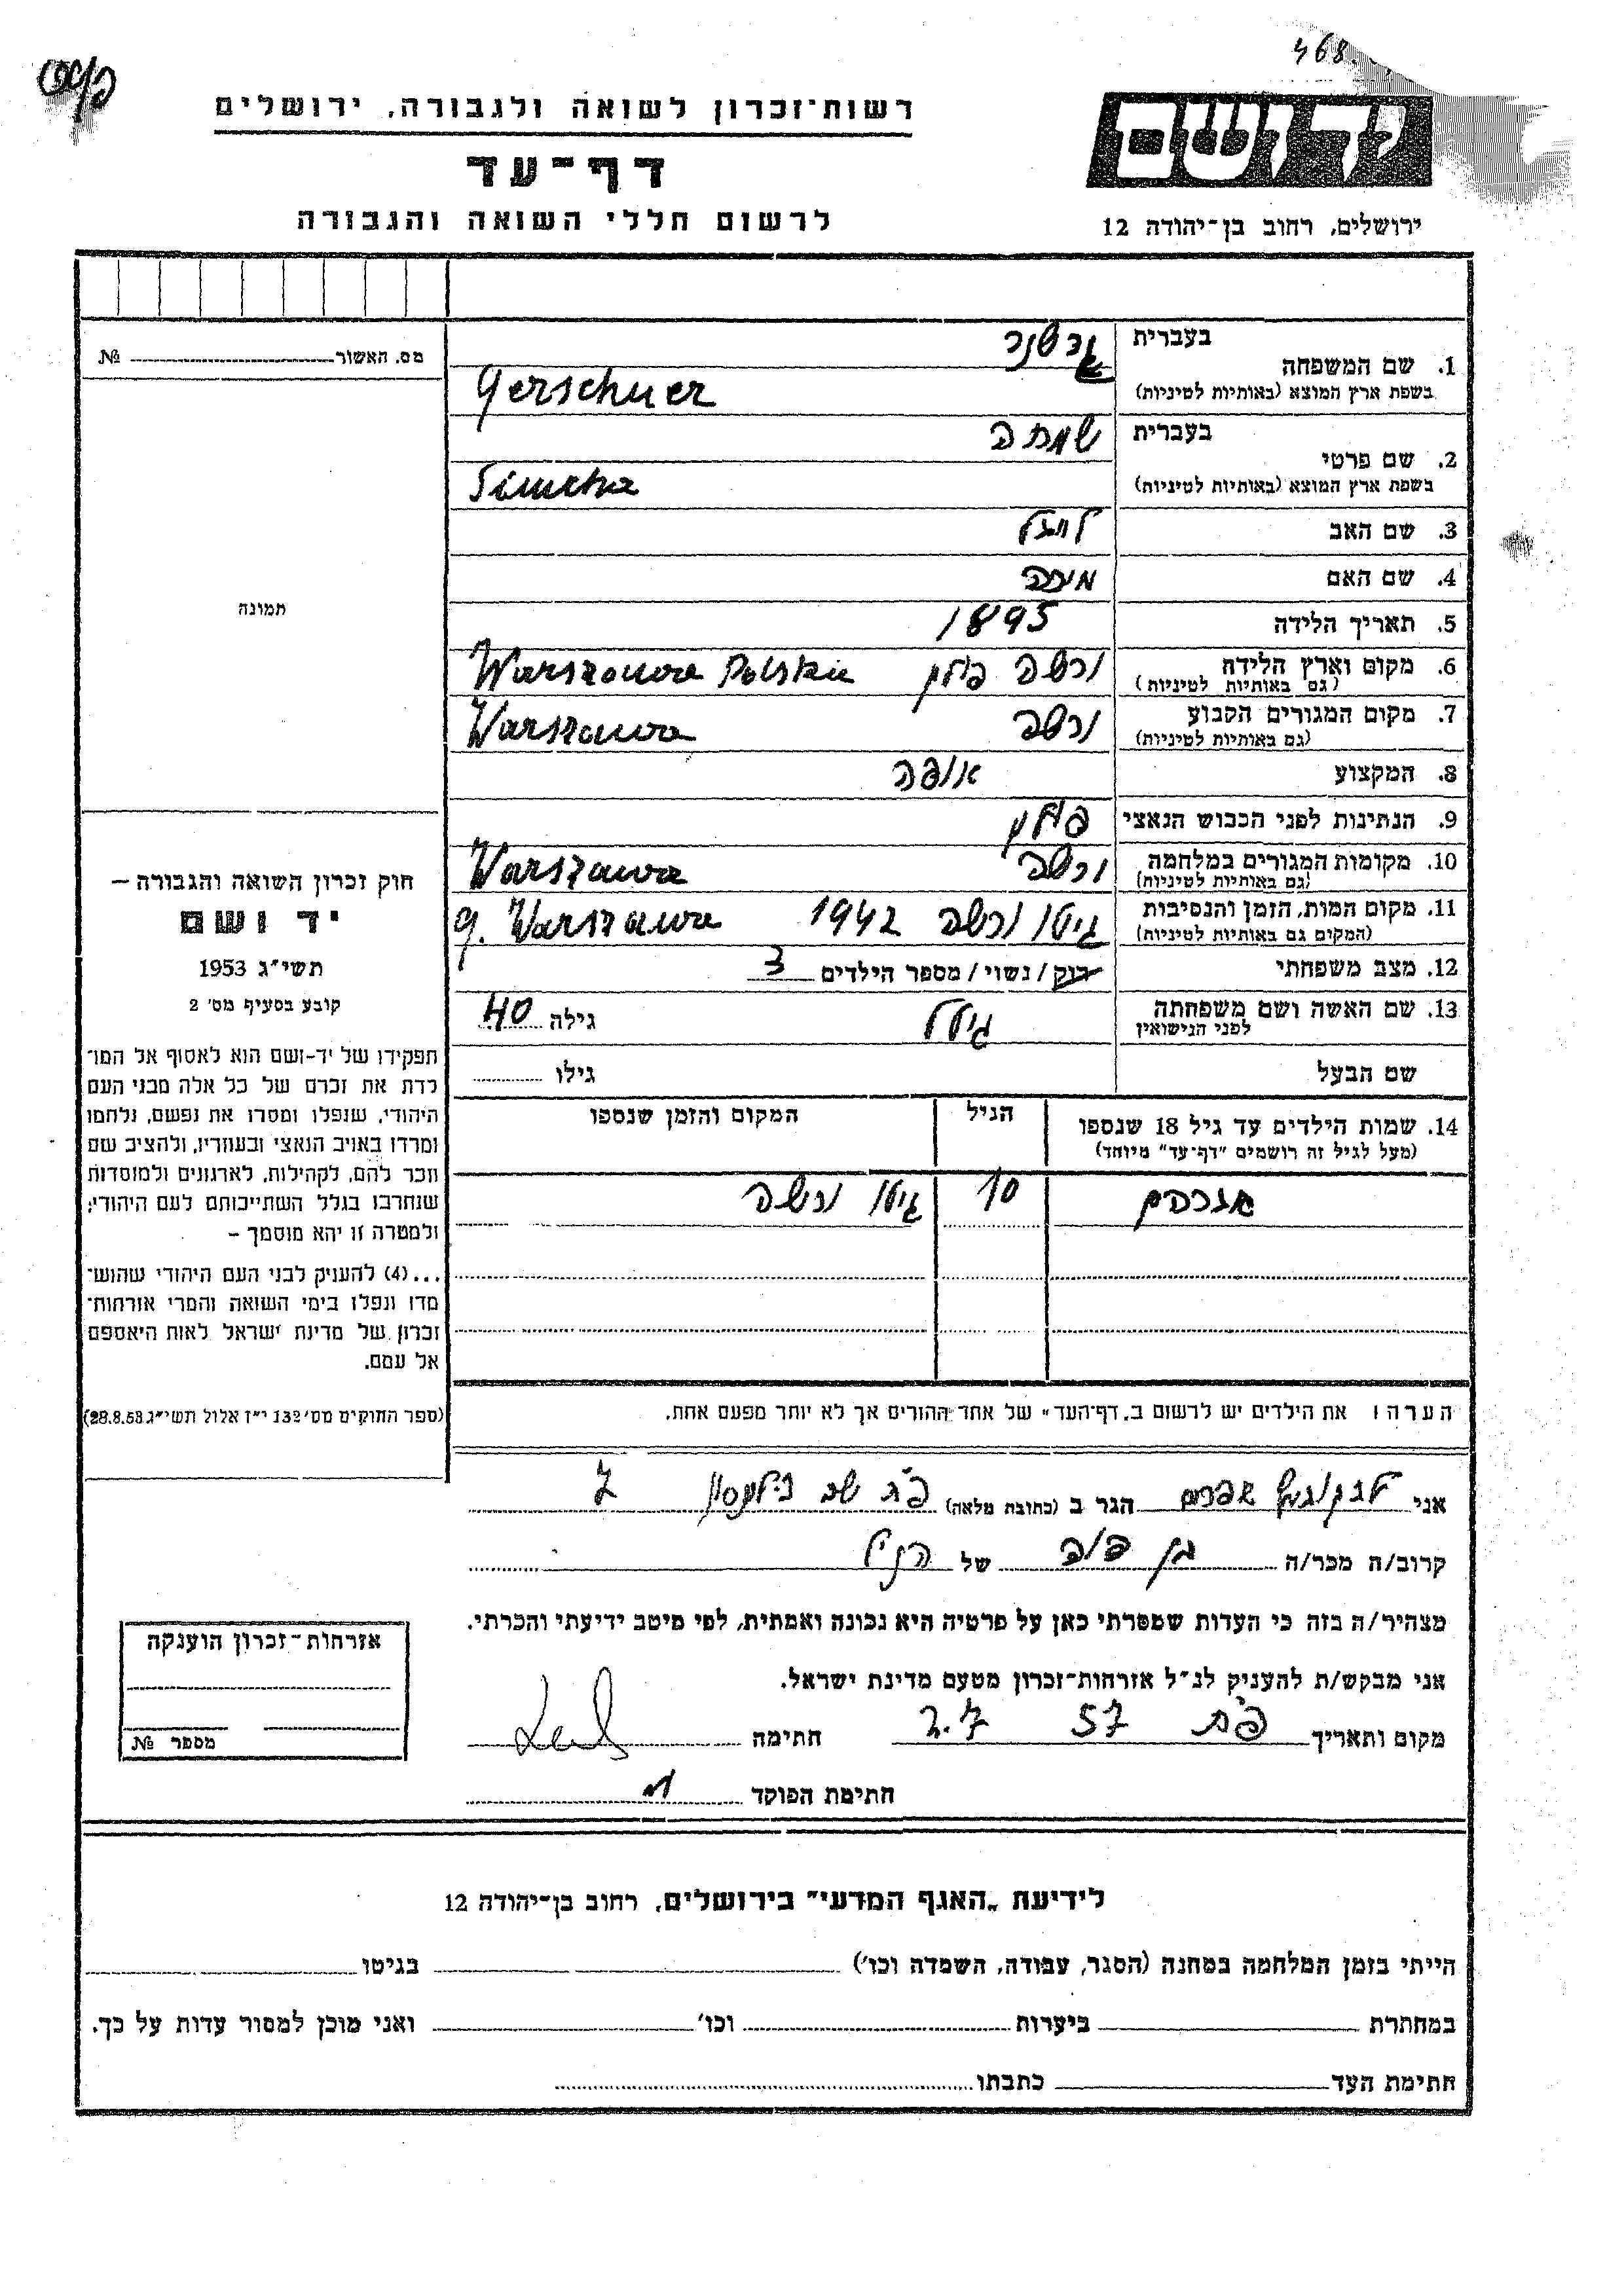 468.
רשות־זכרון לשואה ולגבורה, ירושלים
יד ושם
דף־עד
לרשום חללי השואה והגבורה
ירושלים, רחוב בן־יהודה 12
מס. האשור № 
תמונה
חוק זכרון השואה והגבורה –
יד ושם
תשי״ג 1953
קובע בסעיף מס' 2
תפקידו של יד-ושם הוא לאסוף אל המו־
לדת את זכרם של כל אלה מבני העם
היהודי, שנפלו ומסרו את נפשם, נלחמו
ומרדו באויב הנאצי ובעוזריו, ולהציב שם
וזכר להם, לקהילות, לארגונים ולמוסדות
שנחרבו בגלל השתייכותם לעם היהודי;
ולמטרה זו יהא מוסמך –
...(4) להעניק לבני העם היהודי שהוש־
מדו ונפלו בימי השואה והמרי אזרחות־
זכרון של מדינת ישראל לאות היאספם
אל עמם.
(ספר החוקים מס' 132 י״ז אלול תשי״ג 28.8.53)
בעברית גרשנר
1. שם המשפחה
בשפת ארץ המוצא (באותיות לטיניות) Gerschner
בעברית שמחה
2. שם פרטי
בשפת ארץ המוצא (באותיות לטיניות) Simcha
3. שם האב
4. שם האם
5. תאריך הלידה 1895
6. מקום וארץ הלידה ורשה פולין Warszawa Polska
(גם באותיות לטיניות)
7. מקום המגורים הקבוע ורשה Warszawa
(גם באותיות לטיניות)
8. המקצוע אופה
9. הנתינות לפני הכבוש הנאצי פולין
10. מקומות המגורים במלחמה ורשה Warszawa
(גם באותיות לטיניות)
11. מקום המות, הזמן והנסיבות גיטו ורשה 1942 g. Warszawa
(המקום גם באותיות לטיניות)
12. מצב משפחתי רוק/נשוי/מספר הילדים 3
13. שם האשה ושם משפחתה גיטל גילה 40
לפני הנישואין
שם הבעל גילו
14. שמות הילדים עד גיל 18 שנספו הגיל המקום והזמן שנספו
(מעל לגיל זה רושמים "דף־עד" מיוחד)
אברהם 10 גיטו ורשה
הערה: את הילדים יש לרשום ב„דף־העד" של אחד ההורים אך לא יותר מפעם אחת.
אני הגר ב (כתובת מלאה) פ״ת 7
קרוב/ה מכר/ה בן דוד של הנ״ל
מצהיר/ה בזה כי העדות שמסרתי כאן על פרטיה היא נכונה ואמתית, לפי מיטב ידיעתי והכרתי.
אני מבקש/ת להעניק לנ״ל אזרחות־זכרון מטעם מדינת ישראל.
מקום ותאריך פ״ת 57 7.2 חתימה
חתימת הפוקד
אזרחות־זכרון הוענקה
מספר №
לידיעת „האגף המדעי" בירושלים, רחוב בן־יהודה 12
הייתי בזמן המלחמה במחנה (הסגר, עבודה, השמדה וכו') בגיטו
במחתרת ביערות וכו' ואני מוכן למסור עדות על כך.
חתימת העד כתבתו